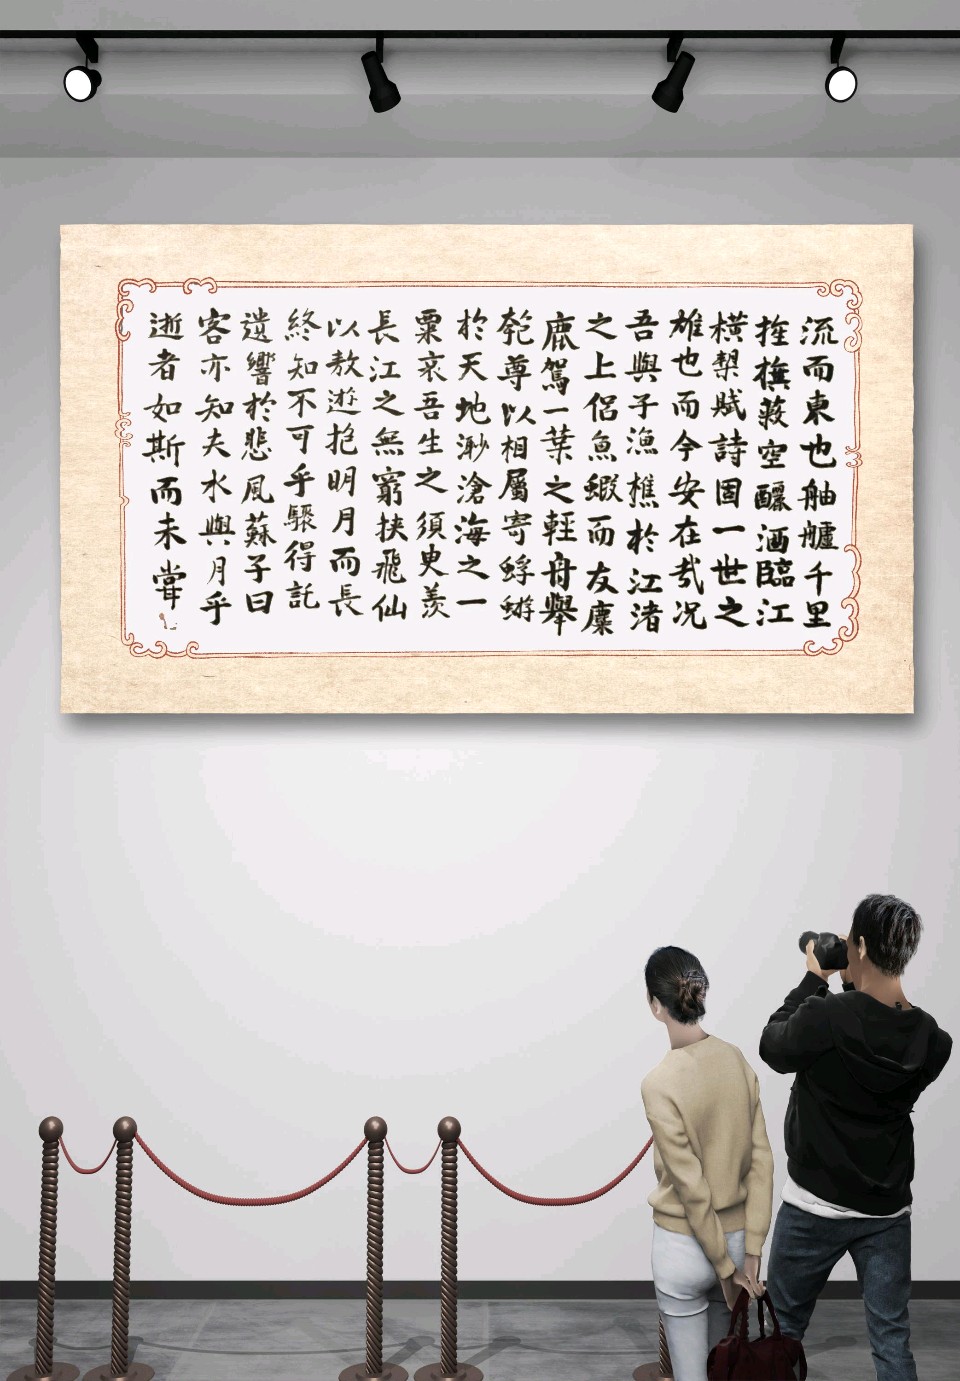 流而東也舳艫千里
旌旗蔽空釃酒臨江
橫槊賦詩固一世之
雄也而今安在哉况
吾與子漁樵於江渚
之上侶魚蝦而友麋
鹿駕一葉之輕舟舉
匏尊以相屬寄蜉蝣
於天地渺滄海之一
粟哀吾生之須臾羨
長江之無窮挾飛仙
以敖遊抱明月而長
終知不可乎驟得託
遺響於悲風蘇子曰
客亦知夫水與月乎
逝者如斯而未嘗